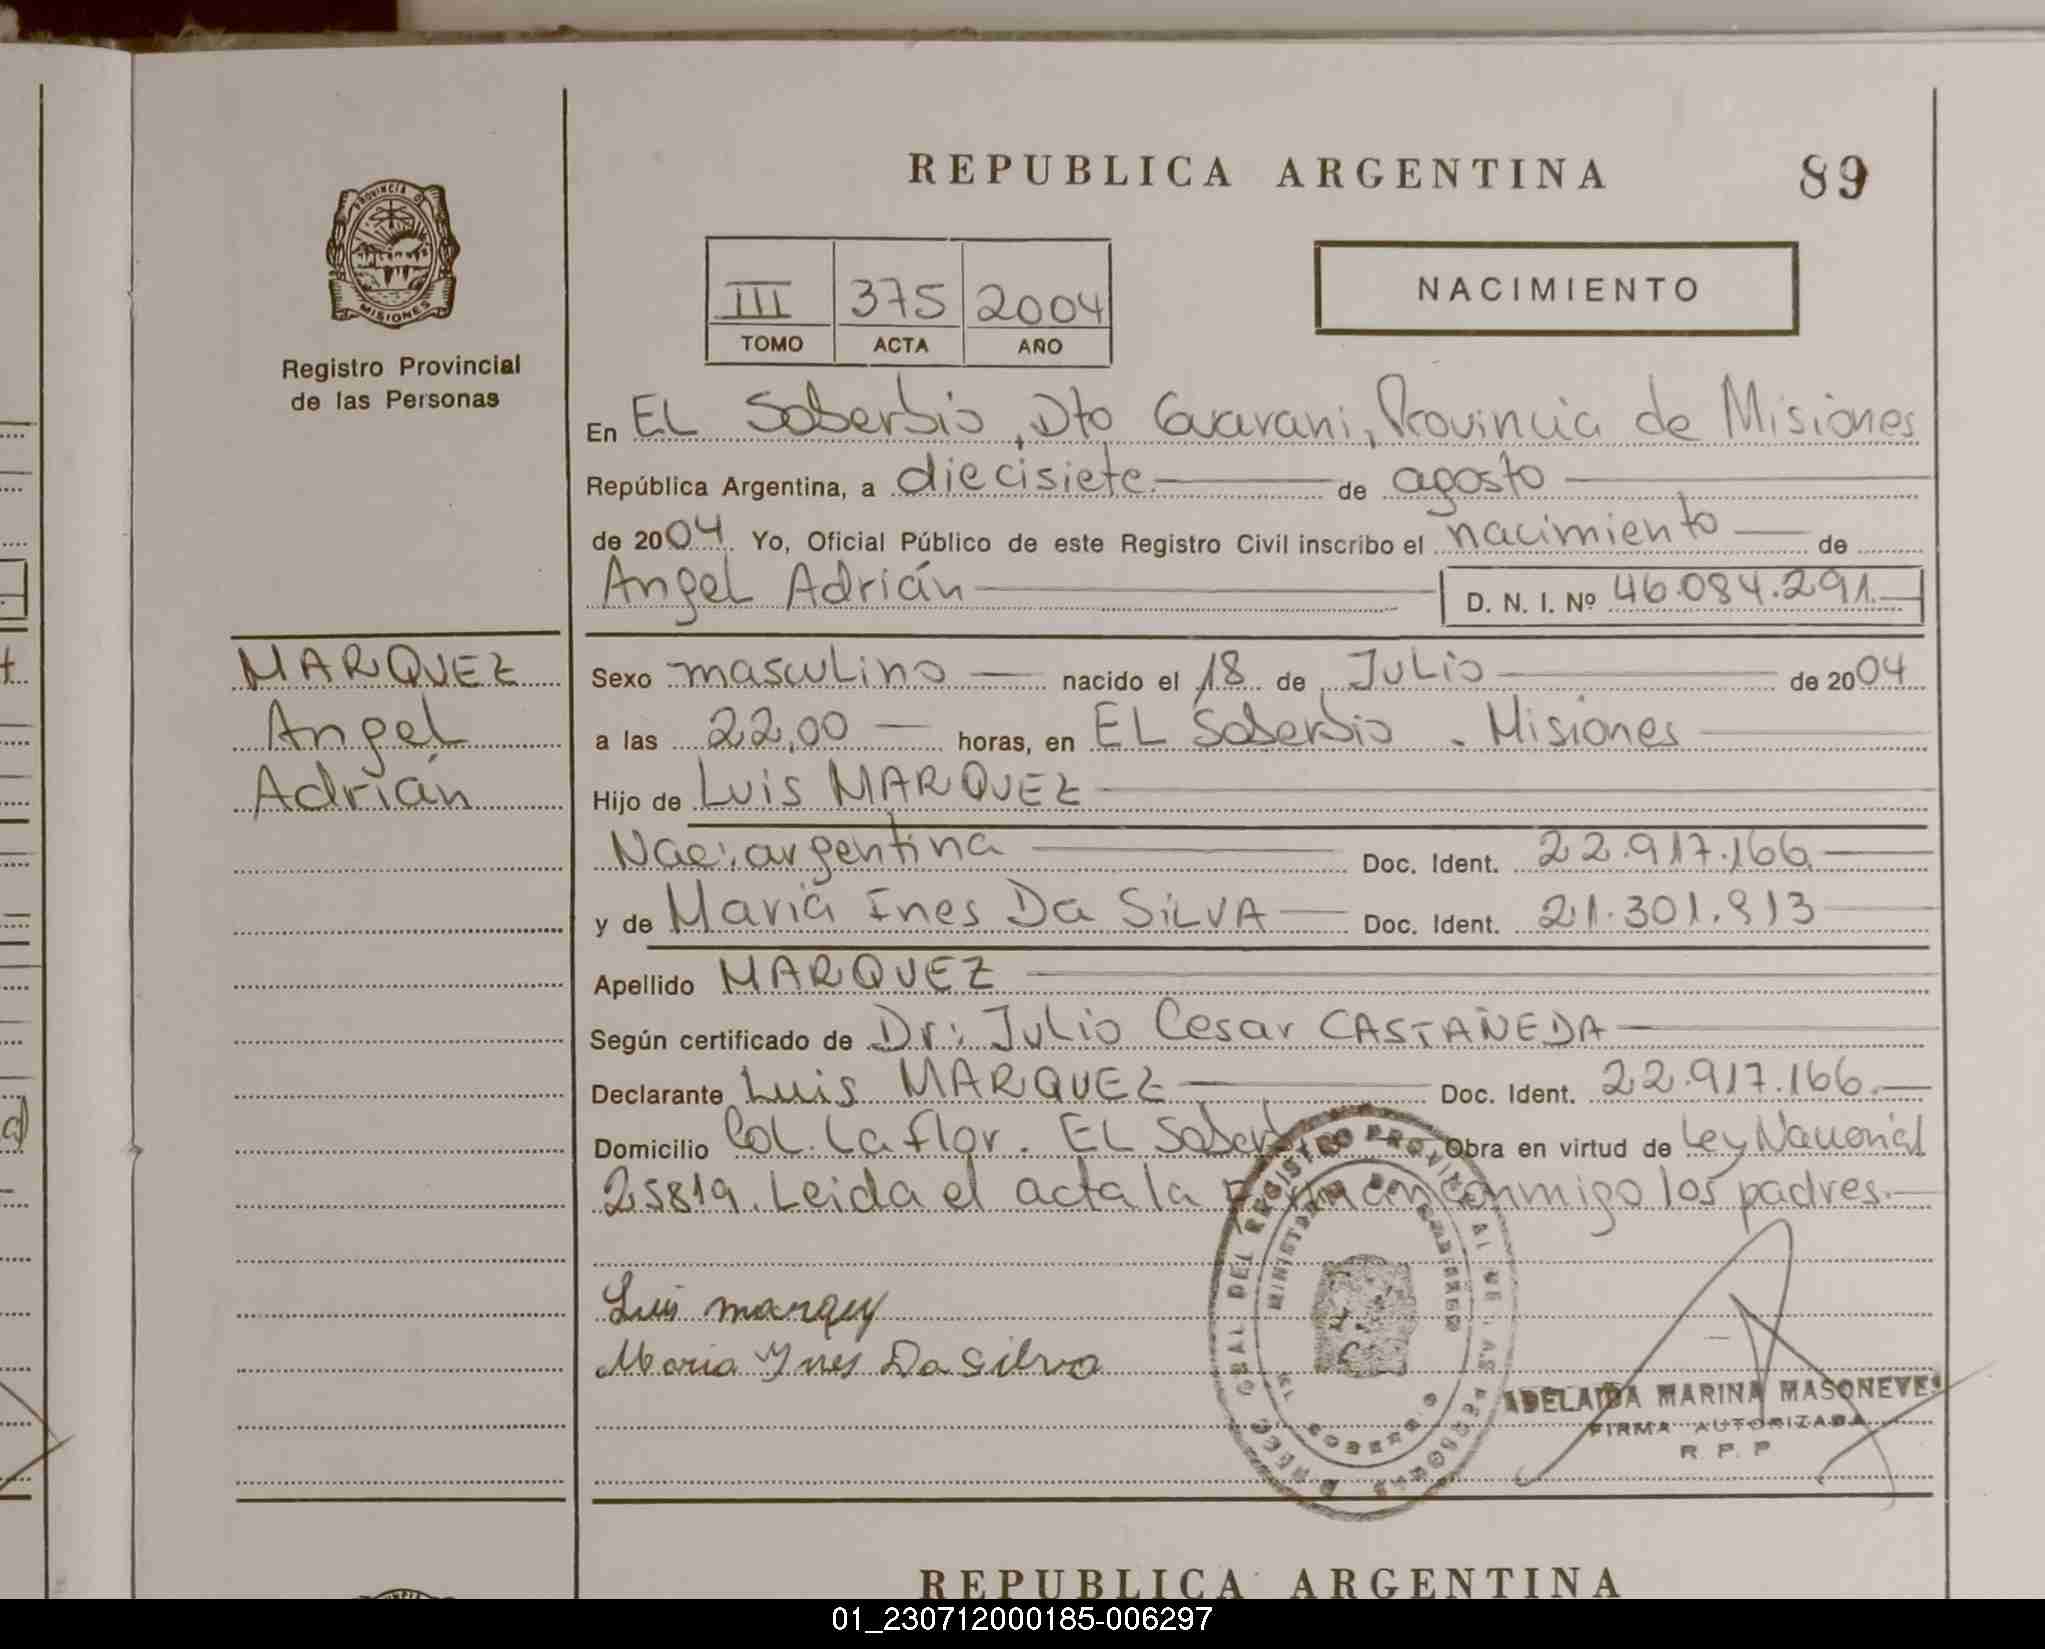 REPUBLICA ARGENTINA
89
PROVINCIA DE
MISIONES
Registro Provincial
de las Personas
III 375 2004
TOMO ACTA AÑO
NACIMIENTO
En EL Soberbio, Dto Guarani, Provincia de Misiones
República Argentina, a diecisiete de agosto
de 2004 Yo, Oficial Público de este Registro Civil inscribo el nacimiento de
Angel Adrián D. N. I. Nº 46.084.291
MARQUEZ
Angel
Adrián
Sexo masculino nacido el 18 de Julio de 2004
a las 22,00 horas, en EL Soberbio - Misiones
Hijo de Luis MARQUEZ
Nac: argentina Doc. Ident. 22.917.166
y de Maria Ines Da SiLVA Doc. Ident. 21.301.913
Apellido MARQUEZ
Según certificado de Dr: Julio Cesar CASTAÑEDA
Declarante Luis MARQUEZ Doc. Ident. 22.917.166
Domicilio Col. La flor. EL Soberbio Obra en virtud de Ley Nacional
25819. Leida el acta la firman conmigo los padres.
Luis marquez
Maria Ynes Da Silva
REGISTRO PROVINCIAL DE LAS PERSONAS
MINISTERIO DE GOBIERNO
ADELAIDA MARINA MASONEVE
FIRMA AUTORIZADA
R. P. P
REPUBLICA ARGENTINA
01_230712000185-006297